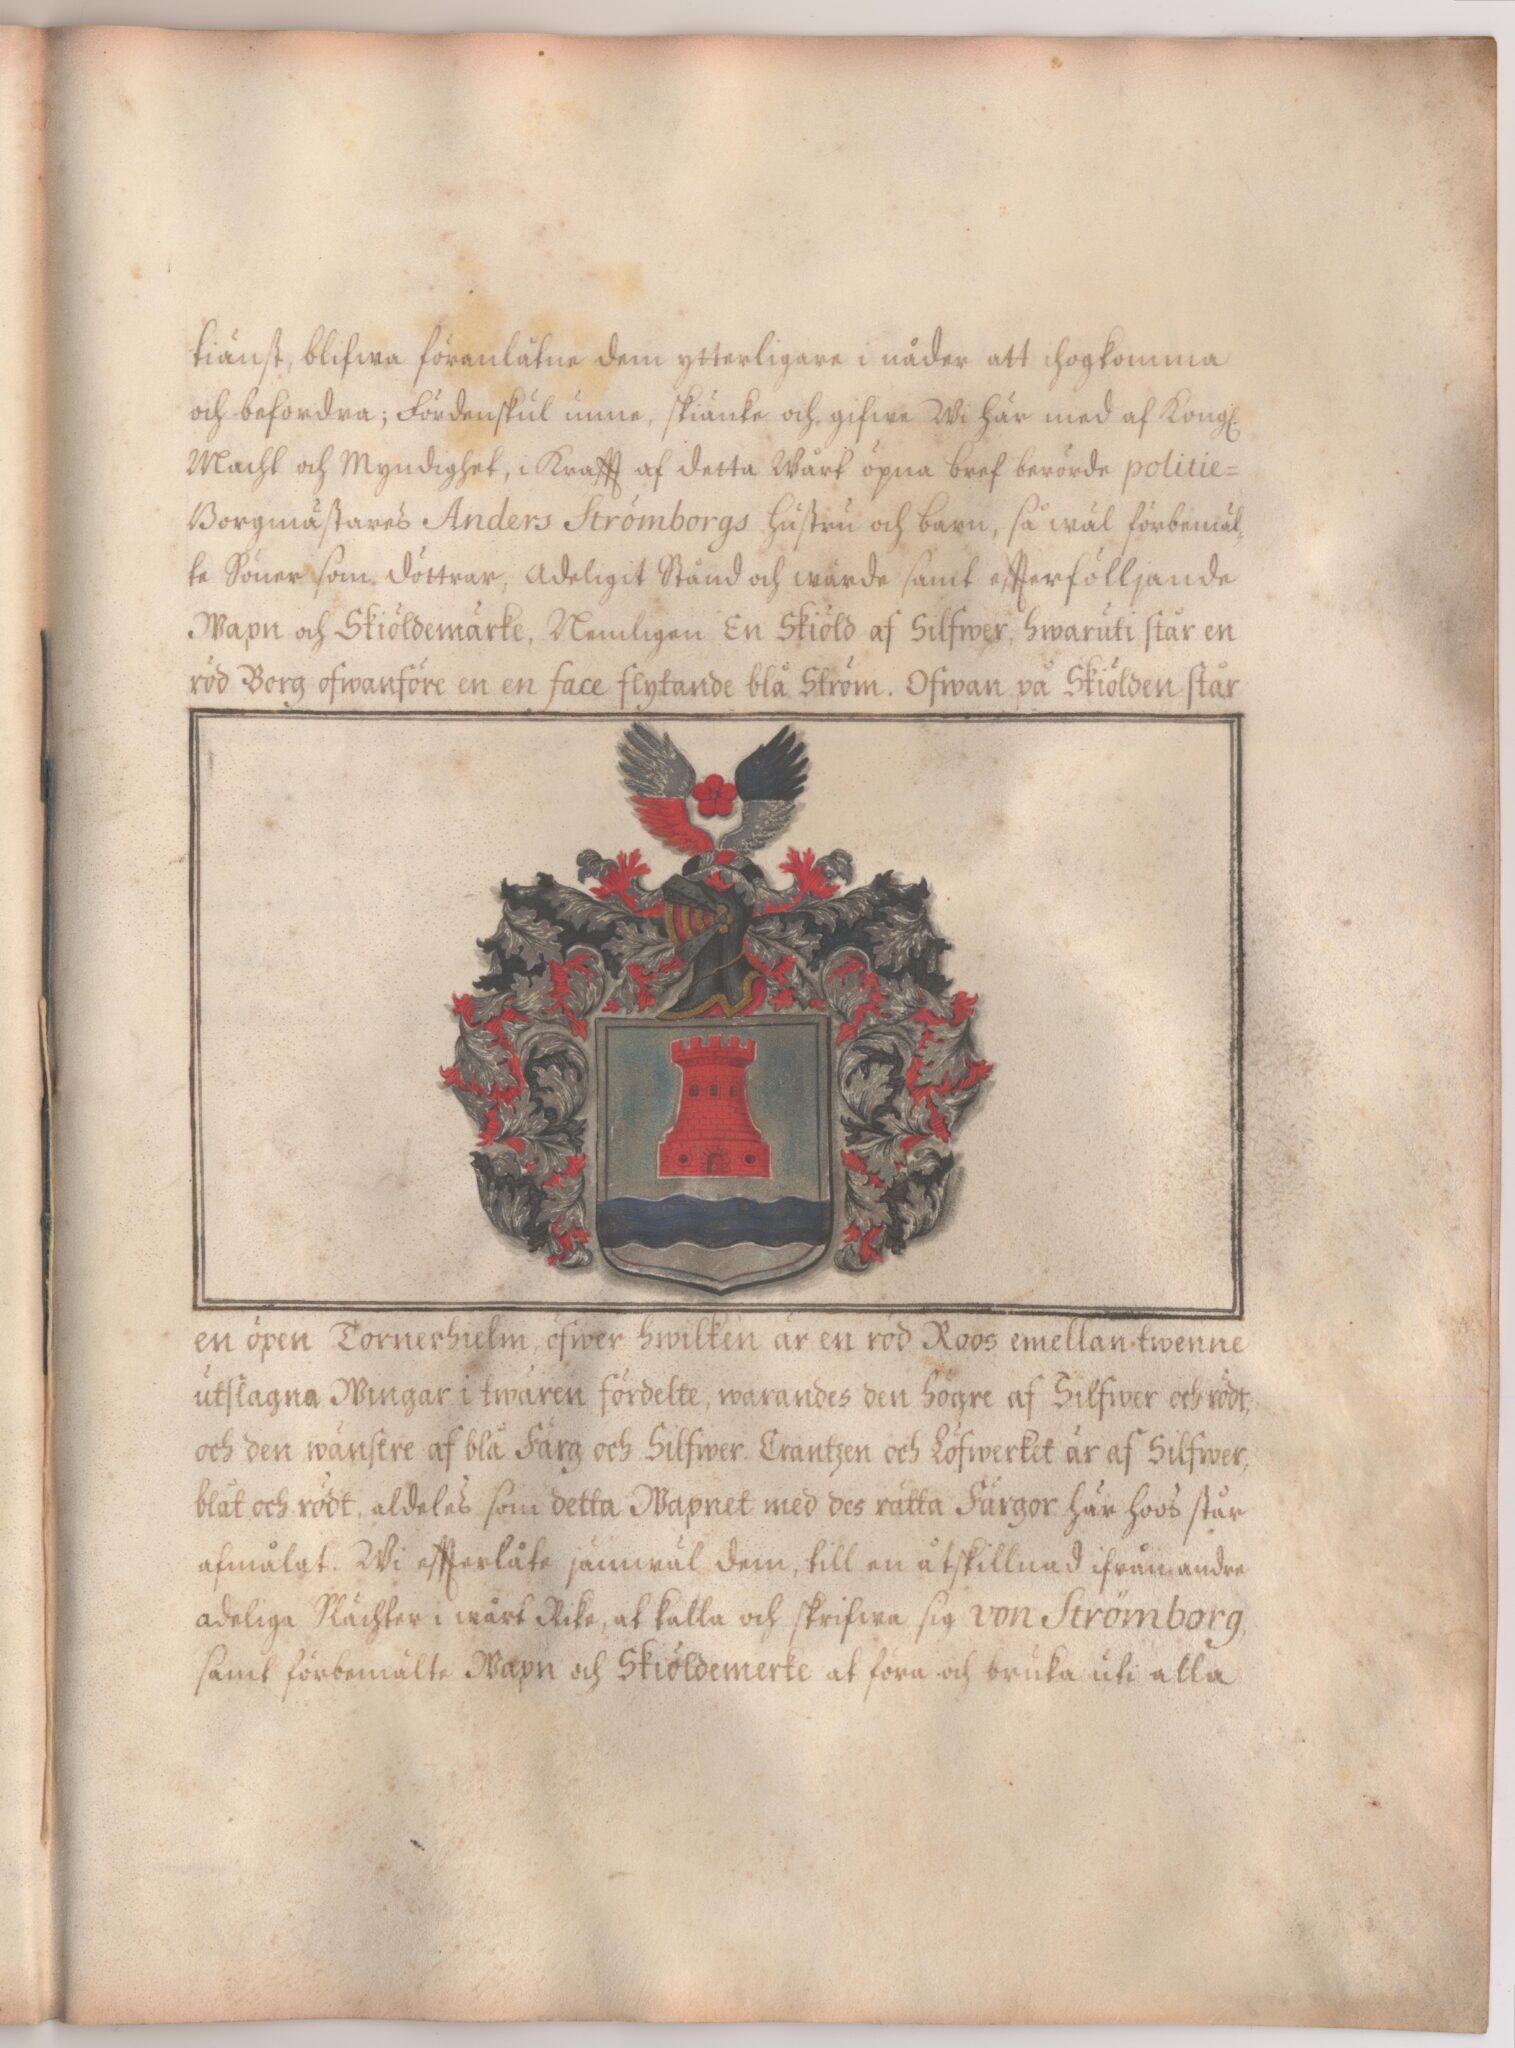 tiänst, blifwa föranlåtne dem ytterligare i nåder att ihogkomma
och befordra; Fördenskul unne, skiänke och gifwe Wi här med af Kongl.
Macht och Myndighet, i Krafft af detta Wårt öpna bref berörde politie=
Borgmästares Anders Strömborgs Hustru och barn, så wäl förbemäl-
te Söner som döttrar, Adeligit Stånd och wärde samt effterfölljande
Wapn och Skiöldemärke, Nemligen En Skiöld af Silfwer, hwaruti står en
röd Borg ofwanföre en en face flytande blå Ström. Ofwan på Skiölden står
en öpen Tornerhielm, öfwer hwilken är en röd Roos emellan twenne
utslagna Wingar i twären fördelte, warandes den högre af Silfwer och rödt,
och den wänstre af blå Färg och Silfwer. Crantzen och Löfwerket är af Silfwer,
blåt och rödt, aldeles som detta Wapnet med des rätta Färgor här hoos står
afmålat. Wi effterlåte jämwäl dem, till en åtskillnad ifrån andre
adeliga Slächter i wårt Rike, at kalla och skrifwa sig von Strömborg,
samt förbemälte Wapn och Skiöldemerke at föra och bruka uti alla